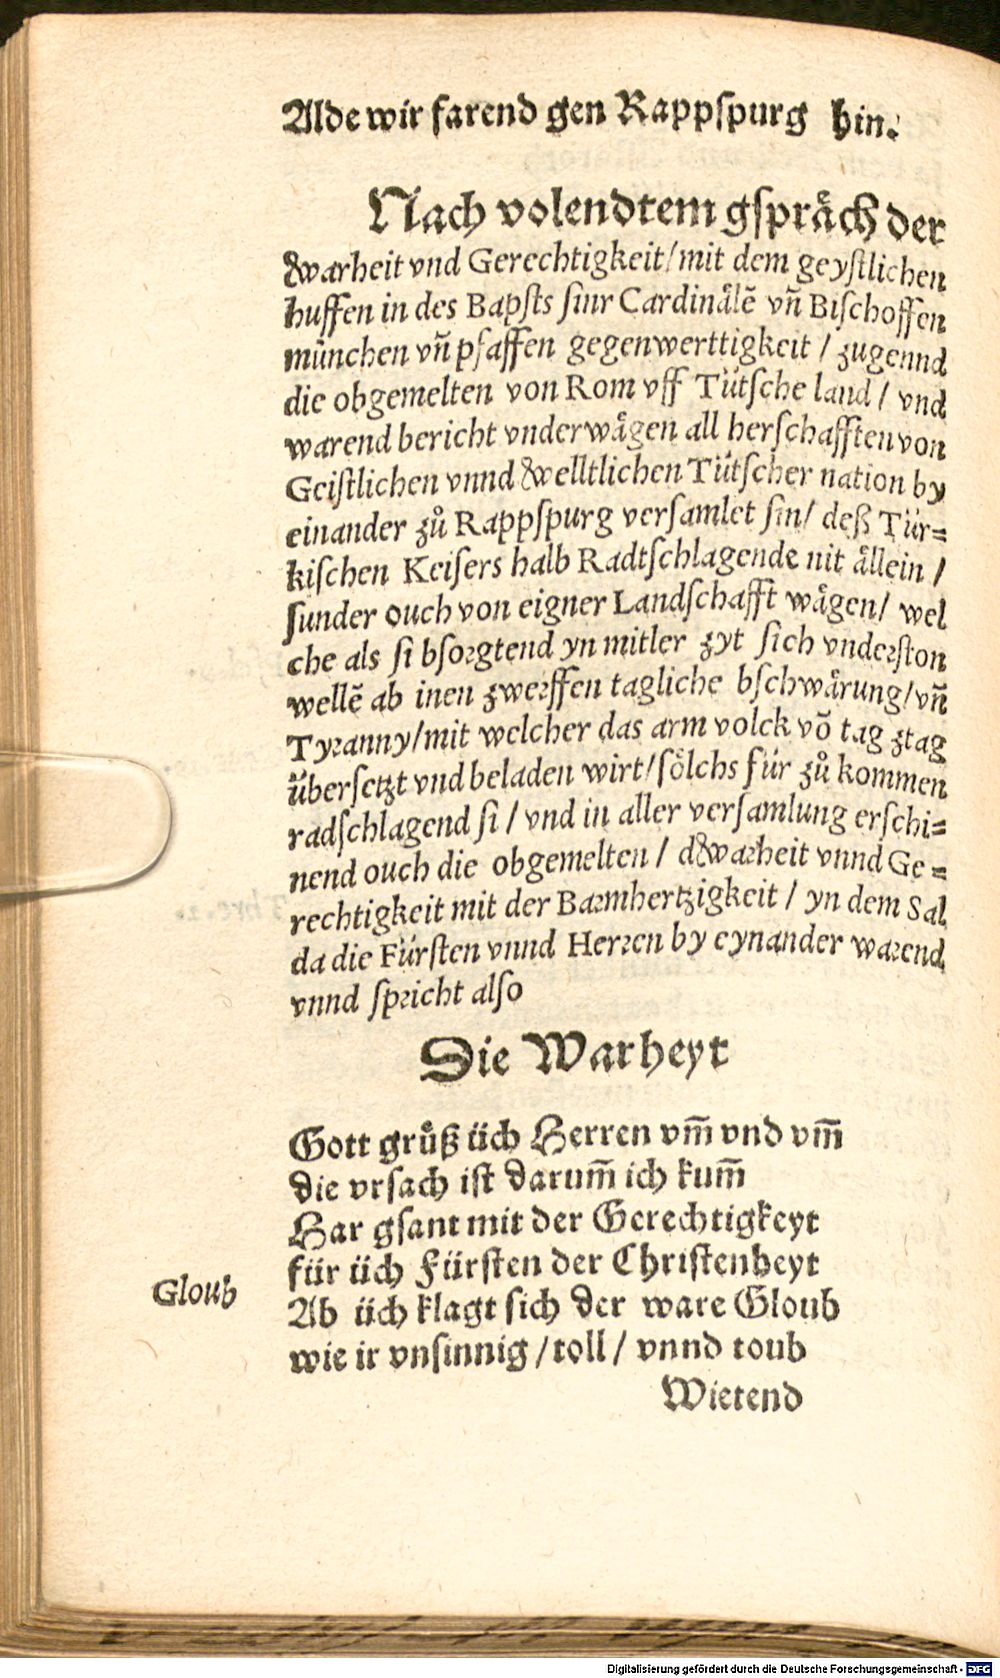 Alde wir farend gen Rappſpurg hin.
Nach volendtem gſpraͤch der
warheit vnd Gerechtigkeit/mit dem geyſtlichen
huffen in des Bapſts ſinr Cardinaͤlẽ vñ Biſchoffen
muͤnchen vñ pfaffen gegenwerttigkeit / zugennd
die obgemelten von Rom vff Tütſche land / vnd
warend bericht vnderwaͤgen all herſchafften von
Geiſtlichen vnnd welltlichen Tütſcher nation by
einander zuͦ Rappſpurg verſamlet ſin/ deß Tür⸗
kiſchen Keiſers halb Radtſchlagende nit aͤllein /
ſunder ouch von eigner Landſchafft waͤgen/ wel
che als ſi bſorgtend yn mitler zyt ſich vnderſton
wellẽ ab inen zwerffen tagliche bſchwaͤrung/vñ
Tyranny/mit welcher das arm volck võ tag ztag
überſetzt vnd beladen wirt/ſoͤlchs für zuͦ kommen
radſchlagend ſi / vnd in aller verſamlung erſchi⸗
nend ouch die obgemelten / dwarheit vnnd Ge⸗
rechtigkeit mit der Barmhertzigkeit / yn dem Sal
da die Fürſten vnnd Herren by eynander warend
vnnd ſpricht alſo
Die Warheyt
Gott gruͤß üch Herren vm̃ vnd vm̃
die vrſach iſt darum̃ ich kum̃
Har gſant mit der Gerechtigkeyt
für üch Fürſten der Chriſtenheyt
Gloub
Ab üch klagt ſich der ware Gloub
wie ir vnſinnig / toll / vnnd toub
Wietend
Digitalisierung gefördert durch die Deutsche Forschungsgemeinschaft - DFG